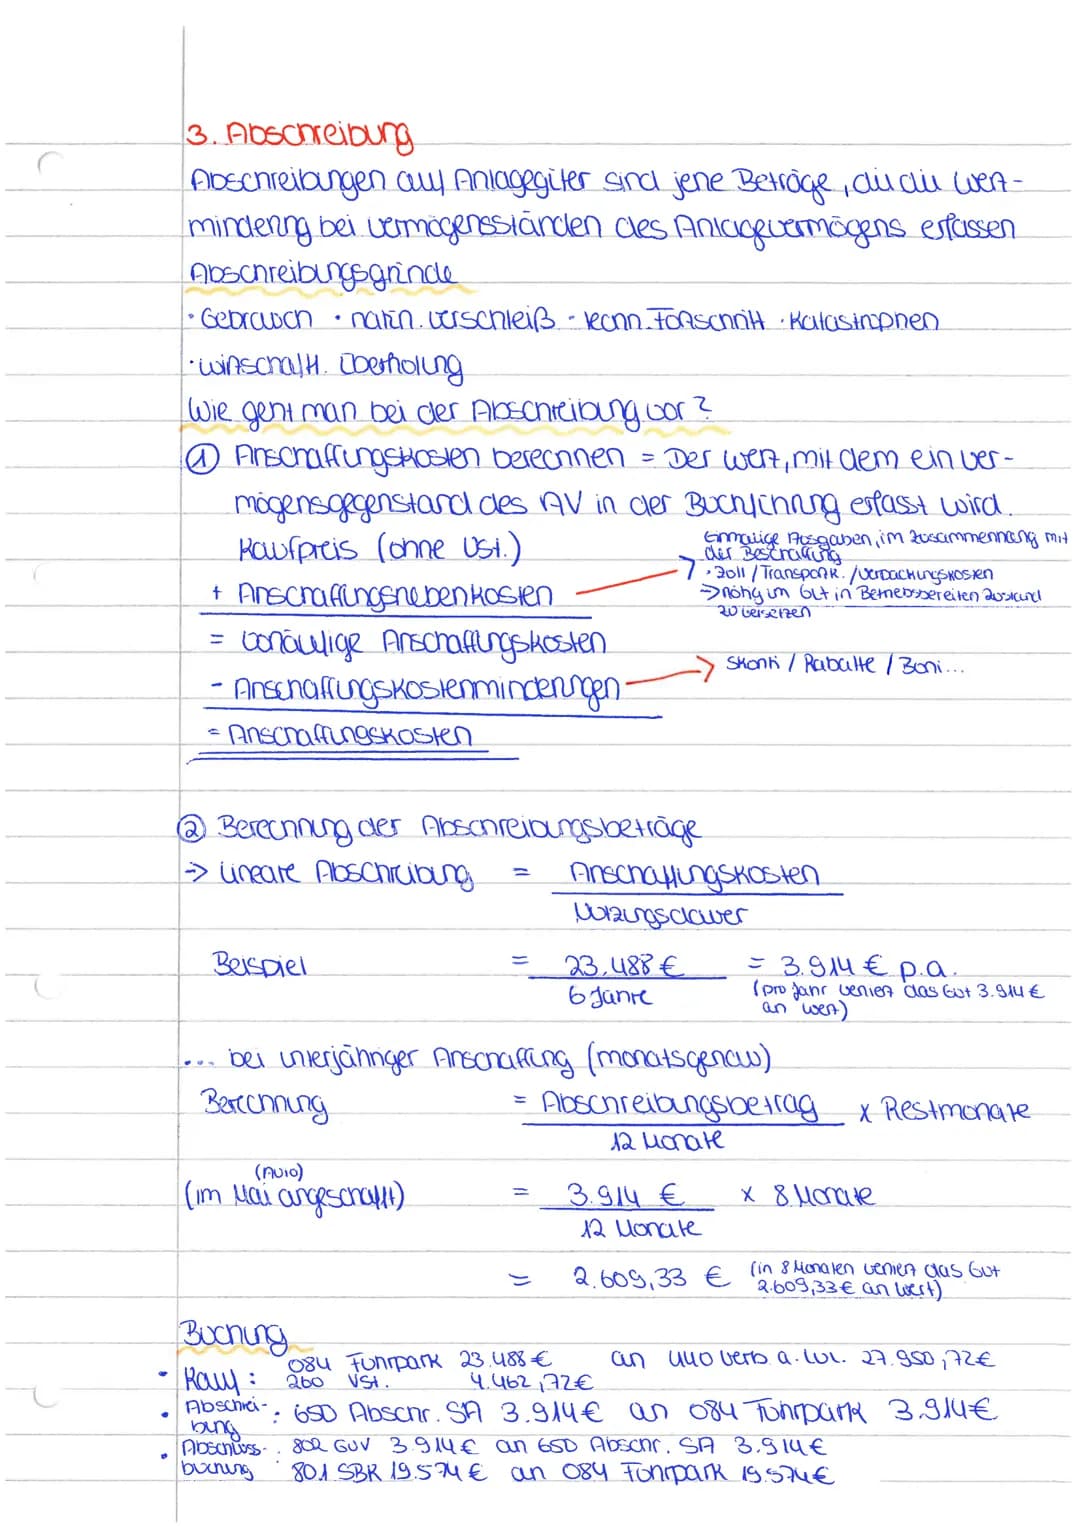 3. Abschreibung
Abschreibungen auf Anlagegüter sind jene Beträge, die die Wert-
minderung bei Vermögensständen des Anlagevermögens erfassen
Abschreibungsgründe
· Gebrauch · natürl. Verschleiß - techn. Fortschritt · Katastrophen
· wirtschaftl. Überholung
Wie geht man bei der Abschreibung vor?
① Anschaffungskosten berechnen = Der Wert, mit dem ein Ver-
mögensgegenstand des AV in der Buchführung erfasst wird.
Kaufpreis (ohne USt.)
Einmalige Ausgaben, im Zusammenhang mit
der Beschaffung
· Zoll / Transportk. / Verpackungskosten
+ Anschaffungsnebenkosten
→ nötig um Gut in Betriebsbereiten Zustand
zu versetzen
= vorläufige Anschaffungskosten
Skonti / Rabatte / Boni...
- Anschaffungskostenminderungen
= Anschaffungskosten
② Berechnung der Abschreibungsbeträge
→ lineare Abschreibung = Anschaffungskosten
Nutzungsdauer
Beispiel = 23.488 € = 3.914 € p.a.
6 Jahre (pro Jahr verliert das Gut 3.914 €
an Wert)
... bei unterjähriger Anschaffung (monatsgenau)
Berechnung = Abschreibungsbetrag x Restmonate
12 Monate
(im Mai angeschafft) = 3.914 € x 8 Monate
12 Monate
= 2.609,33 € (in 8 Monaten verliert das Gut
2.609,33 € an Wert)
Buchung
084 Fuhrpark 23.488 € an 440 Verb. a. LuL. 27.950,72 €
· Kauf: 260 VSt. 4.462,72 €
· Abschrei-
bung : 650 Abschr. SA 3.914 € an 084 Fuhrpark 3.914 €
· Abschluss- : 802 GUV 3.914 € an 650 Abschr. SA 3.914 €
buchung 801 SBK 19.574 € an 084 Fuhrpark 19.574 €